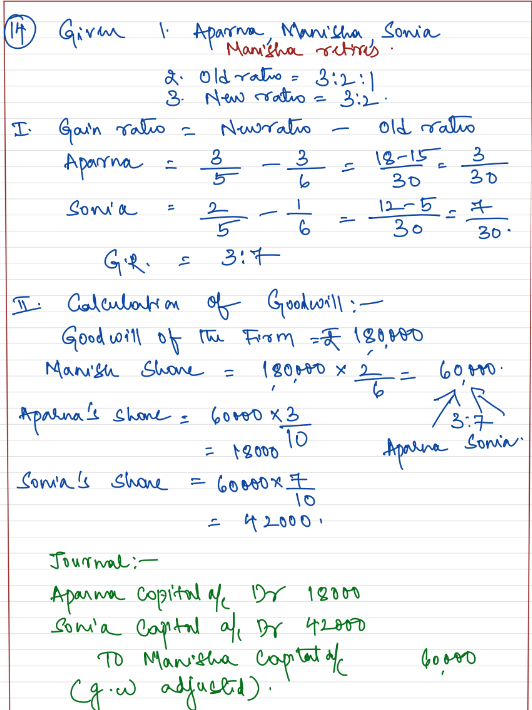 (14) Given 1. Aparna, Manisha, Sonia
Manisha retires.
2. Old ratio = 3:2:1
3. New ratio = 3:2.
I. Gain ratio = New ratio - Old ratio
Aparna = 3/5 - 3/6 = 18-15/30 = 3/30
Sonia = 2/5 - 1/6 = 12-5/30 = 7/30.
G.R. = 3:7
II. Calculation of Goodwill:-
Goodwill of the Firm = ₹ 180,000
Manish Share = 180,000 × 2/6 = 60,000.
3:7
Aparna Sonia
Aparna's share = 60000 × 3/10
= 18000
Sonia's Share = 60000 × 7/10
= 42000.
Journal:-
Aparna Capital a/c Dr 18000
Sonia Capital a/c Dr 42000
To Manisha Capital a/c 60,000
(g.w adjusted).